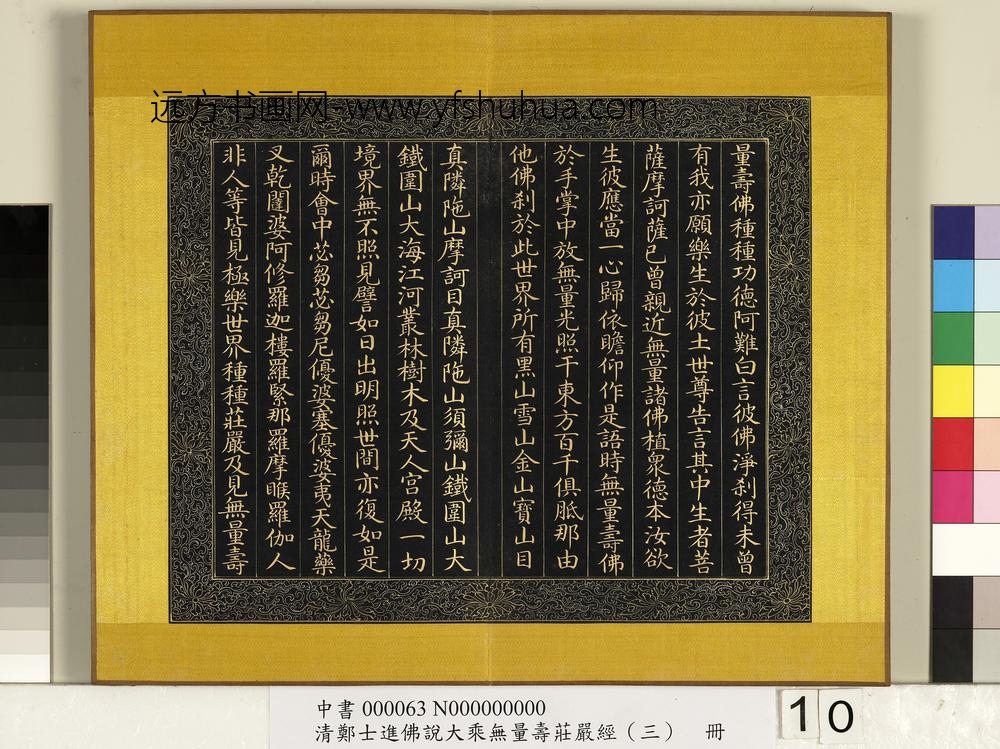 远方书画网-www.yfshuhua.com
量壽佛種種功德阿難白言彼佛淨刹得未曾
有我亦願樂生於彼土世尊告言其中生者菩
薩摩訶薩已曾親近無量諸佛植衆德本汝欲
生彼應當一心歸依瞻仰作是語時無量壽佛
於手掌中放無量光照于東方百千俱胝那由
他佛刹於此世界所有黑山雪山金山寶山目
真隣陁山摩訶目真隣陁山須彌山鐵圍山大
鐵圍山大海江河叢林樹木及天人宮殿一切
境界無不照見譬如日出明照世間亦復如是
爾時會中苾芻苾芻尼優婆塞優婆夷天龍藥
叉乾闥婆阿修羅迦樓羅緊那羅摩睺羅伽人
非人等皆見極樂世界種種莊嚴及見無量壽
中書 000063 N000000000
清鄭士進佛說大乘無量壽莊嚴經（三） 冊
10